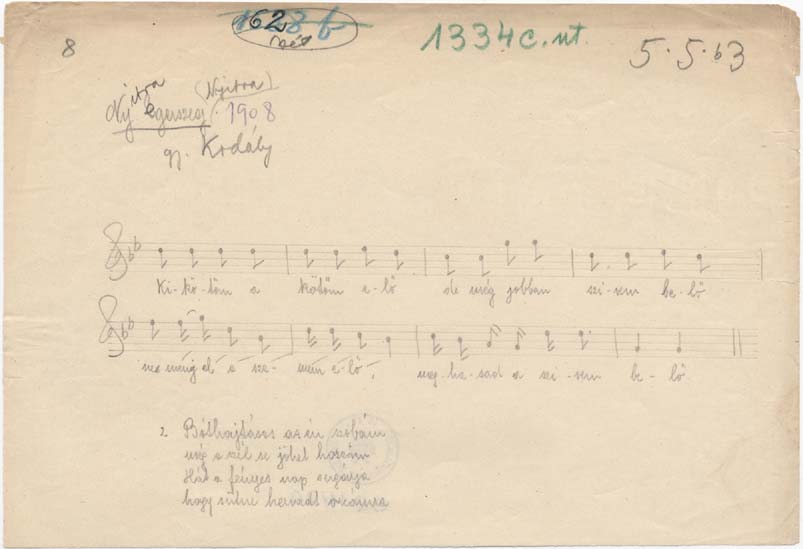 8
1628 b
1334c. nt.
5.5.63
(Nyitra)
Nyitra
Egerszeg 1908
gy. Kodály
Ki-kö-töm a kötőm e-lő de még jobban szi-vem be-lő
ne menj el a sze-mem e-lő, meg-ha-sad a szi-vem be-lő
2. Bóthajtásos az én szobám
még a szél se jöhet hozzám
Hát a fényes nap sugárja
hogy sütne hervadt orcámra